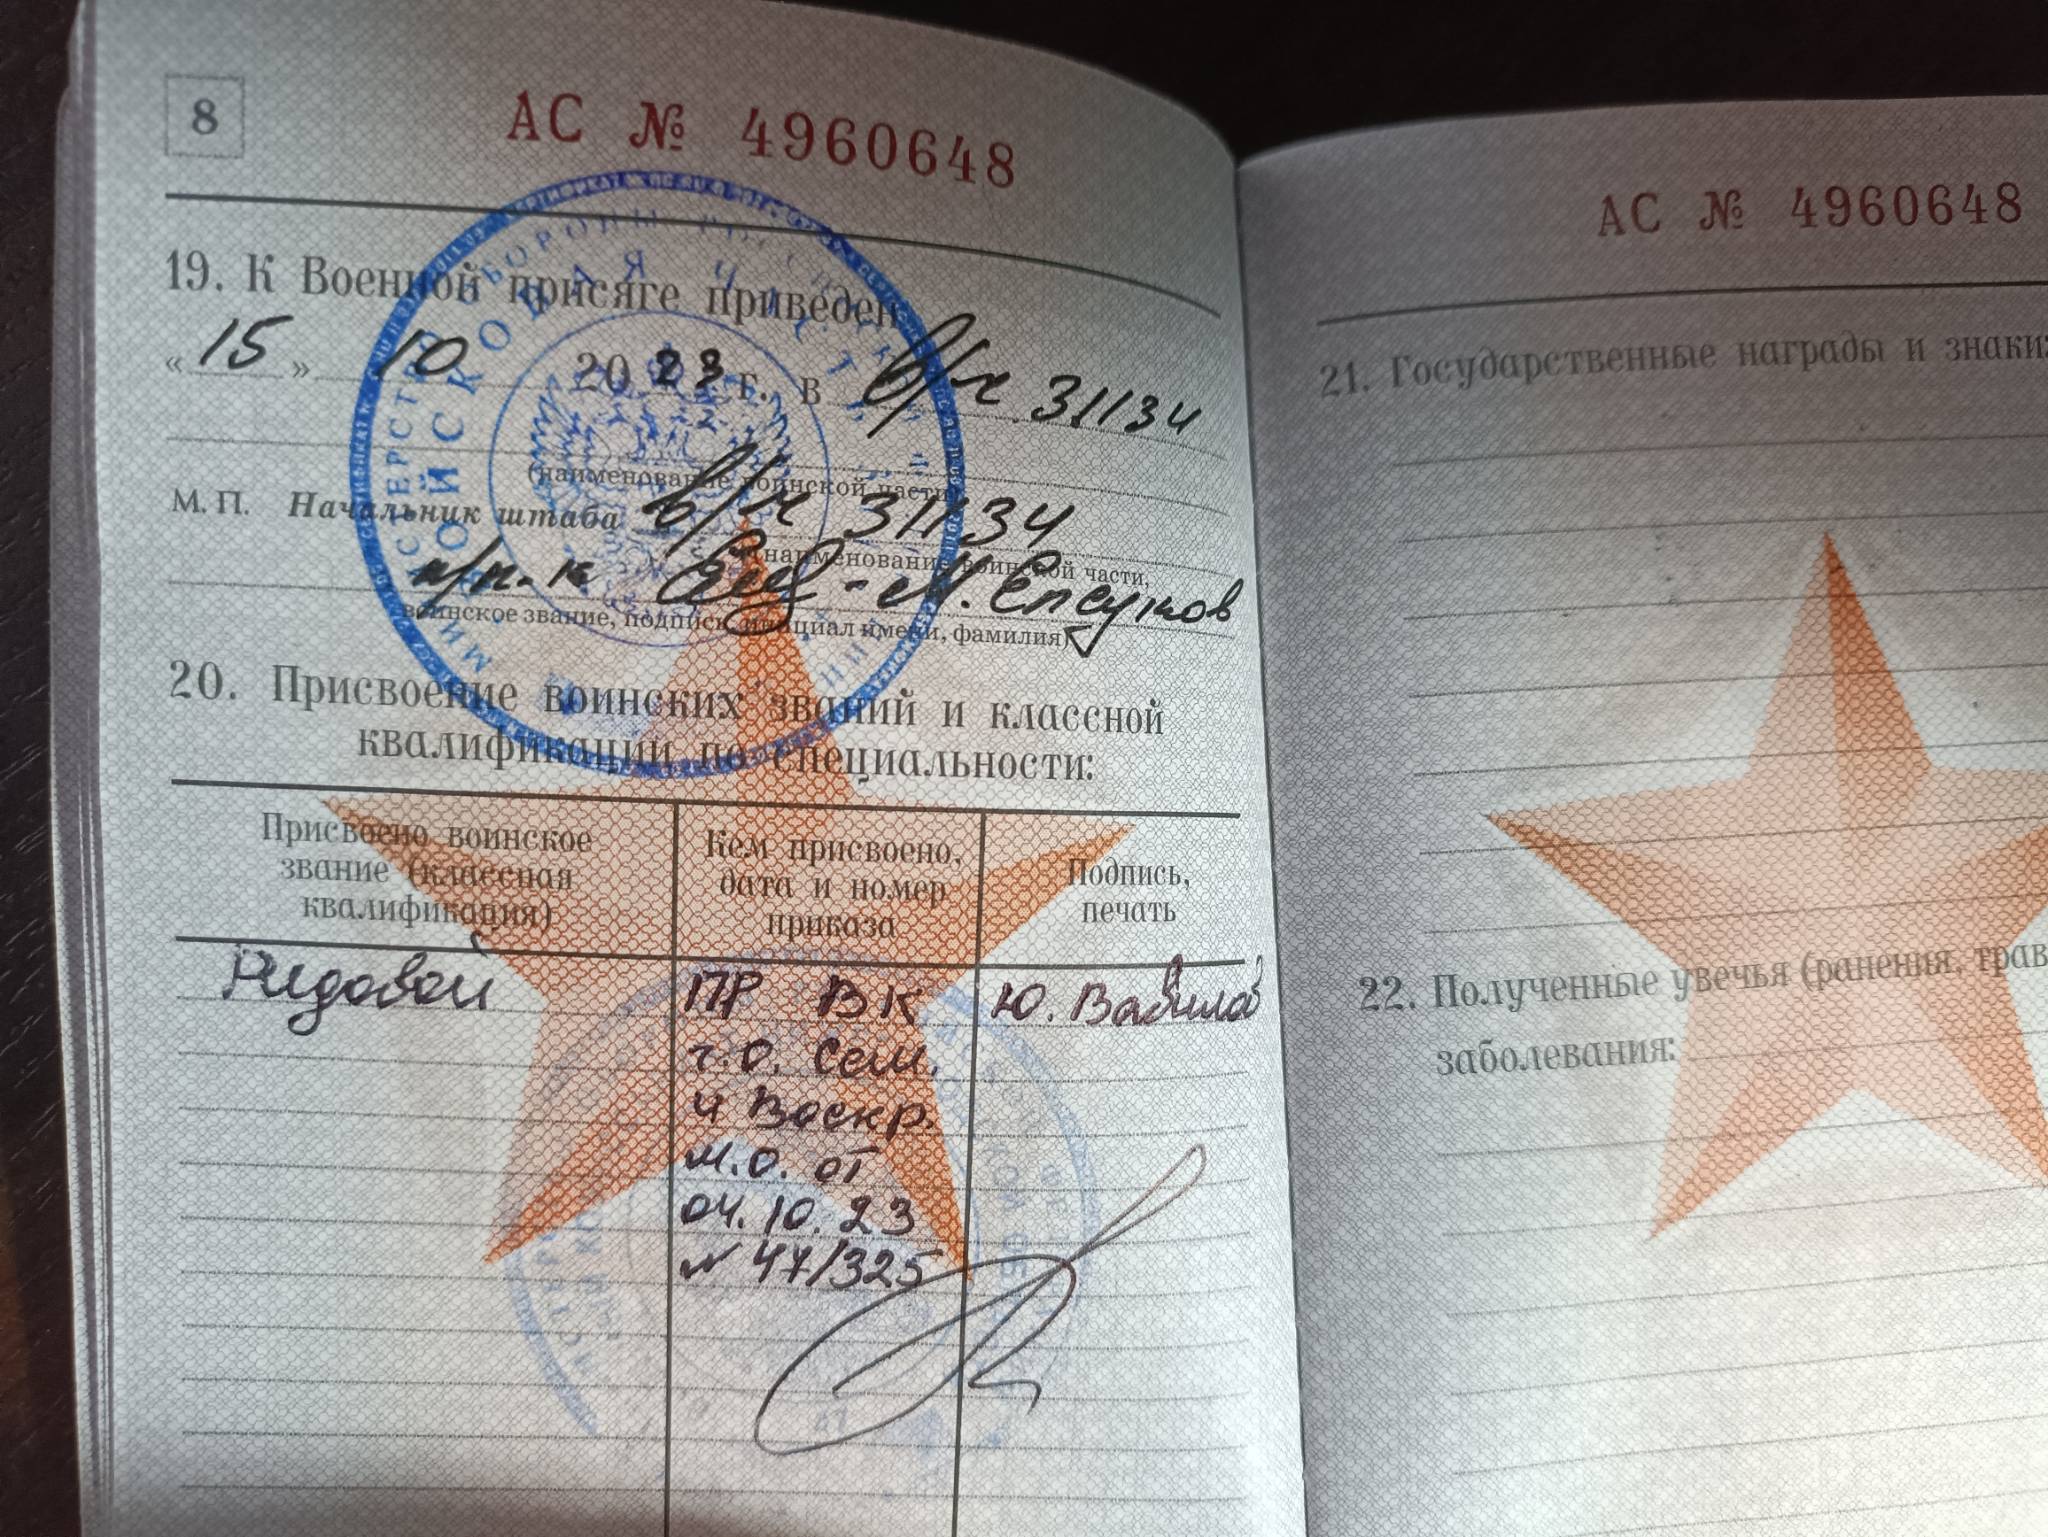 8
АС № 4960648
19. К Военной присяге приведен
« 15 » 10 2023 г. в в/ч 31134
(наименование воинской части)
М. П. Начальник штаба в/ч 31134
(наименование воинской части,
п/п-к М. Епсуков
воинское звание, подпись, инициал имени, фамилия)
20. Присвоение воинских званий и классной
квалификации по специальности:
Присвоено воинское
звание (классная
квалификация)
Кем присвоено,
дата и номер
приказа
Подпись,
печать
Рядовой
ПР ВК
г.о. Сем.
и Воскр.
м.о. от
04.10.23
№ 47/325
Ю. Вавилов
ВОЙСКОВАЯ ЧАСТЬ
АС № 4960648
21. Государственные награды и знаки
22. Полученные увечья (ранения, трав
заболевания: